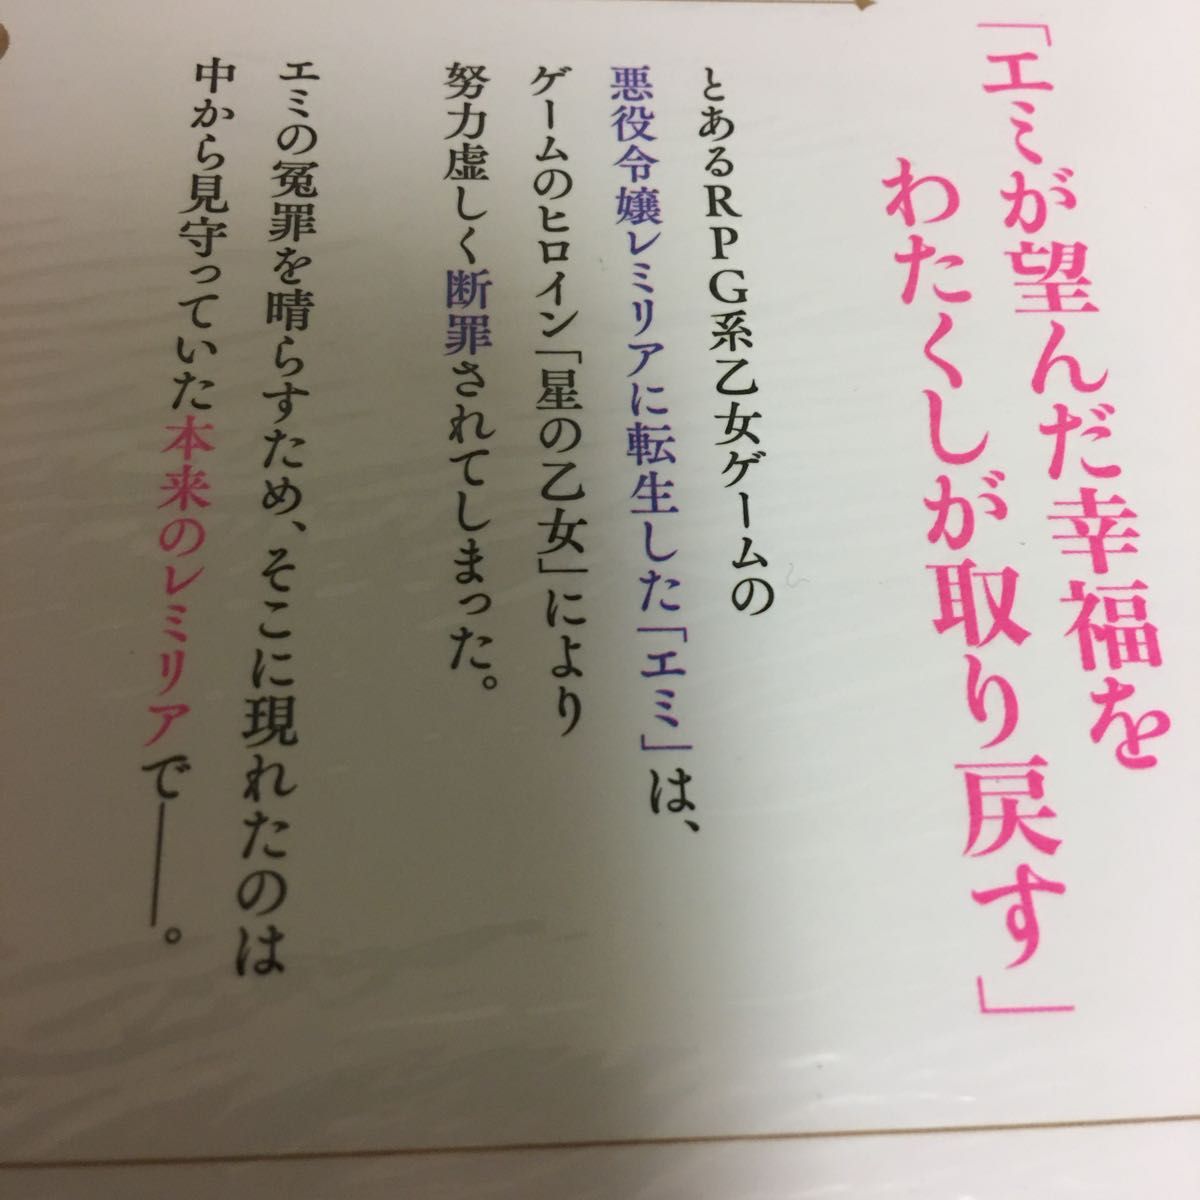 「エミが望んだ幸福を
わたくしが取り戻す」
とあるRPG系乙女ゲームの
悪役令嬢レミリアに転生した「エミ」は、
ゲームのヒロイン「星の乙女」により
努力虚しく断罪されてしまった。
エミの冤罪を晴らすため、そこに現れたのは
中から見守っていた本来のレミリアで――。